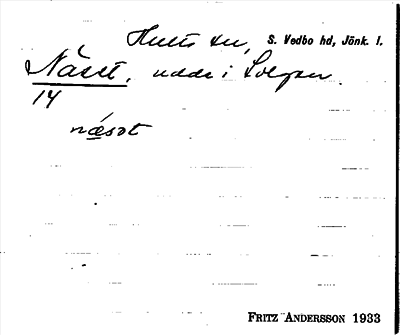 Hults sn, S. Vedbo hd, Jönk. l.
Näset, udde i Solgen.
14
næsət
FRITZ ANDERSSON 1933